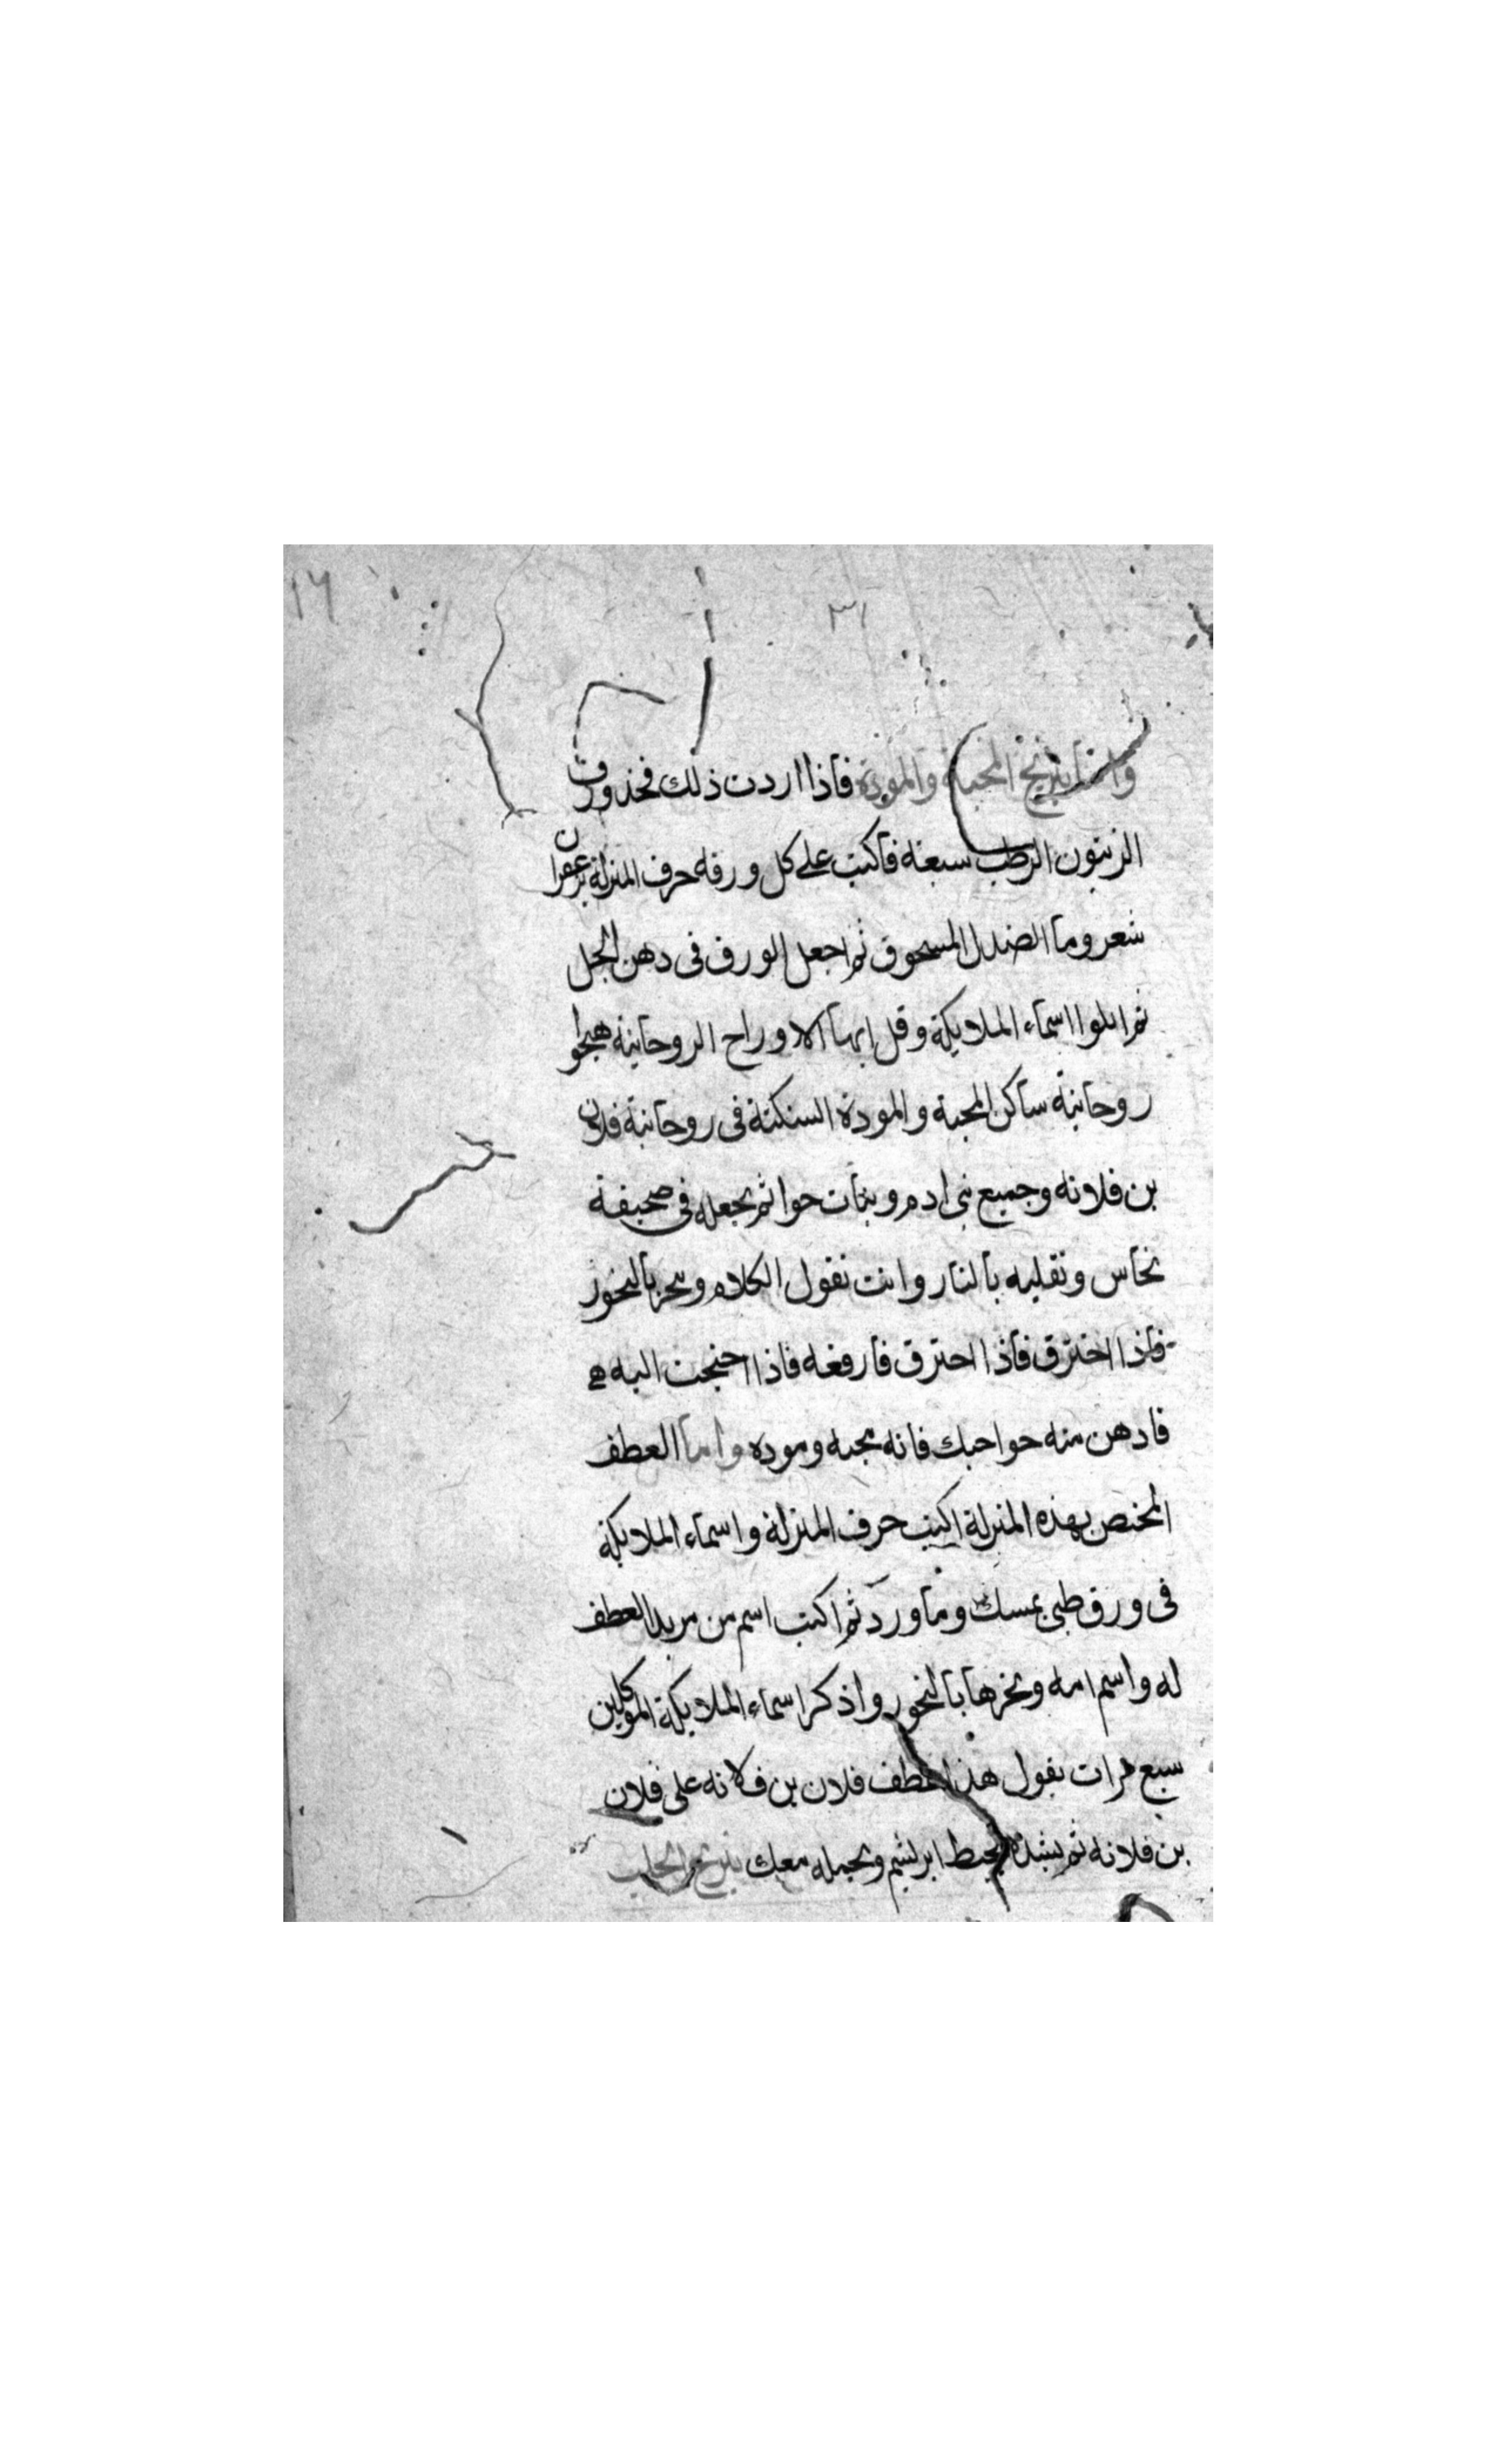 ١٦
٣١
واما نيرنج المحبة والمودة فاذا اردت ذلك فخذ ورق
الزيتون الرطب سبعة فاكتب على كل ورقه حرف المنزلة بزعفران
شعر وما الصندل المسحوق ثم اجعل الورق فى دهن الحل
ثم اتلوا اسماء الملايكة وقل ايها الاوراح الروحانية هيجوا
روحانية ساكن المحبة والمودة السنكنة فى روحانية فلان
بن فلانه وجميع بنى ادم وبنات حوا ثم تجعله فى صحيفة
نحاس وتقليه بالنار وانت تقول الكلام وتبخر بالبخور
فاذا احترق فاذا احترق فارفعه فاذا احتجت اليه
فادهن منه حواجبك فانه محبه وموده واما العطف
المختص بهذه المنزلة اكتب حرف المنزلة واسماء الملايكة
فى ورق ظبى بمسك وما ورد ثم اكتب اسم من تريد العطف
له واسم امه وبخرها بالبخور واذكر اسماء الملايكة الموكلين
سبع مرات تقول هذا عطف فلان بن فلانه على فلان
بن فلانه ثم تشده بخيط ابريشم وتحمله معك نيرنج الجلب